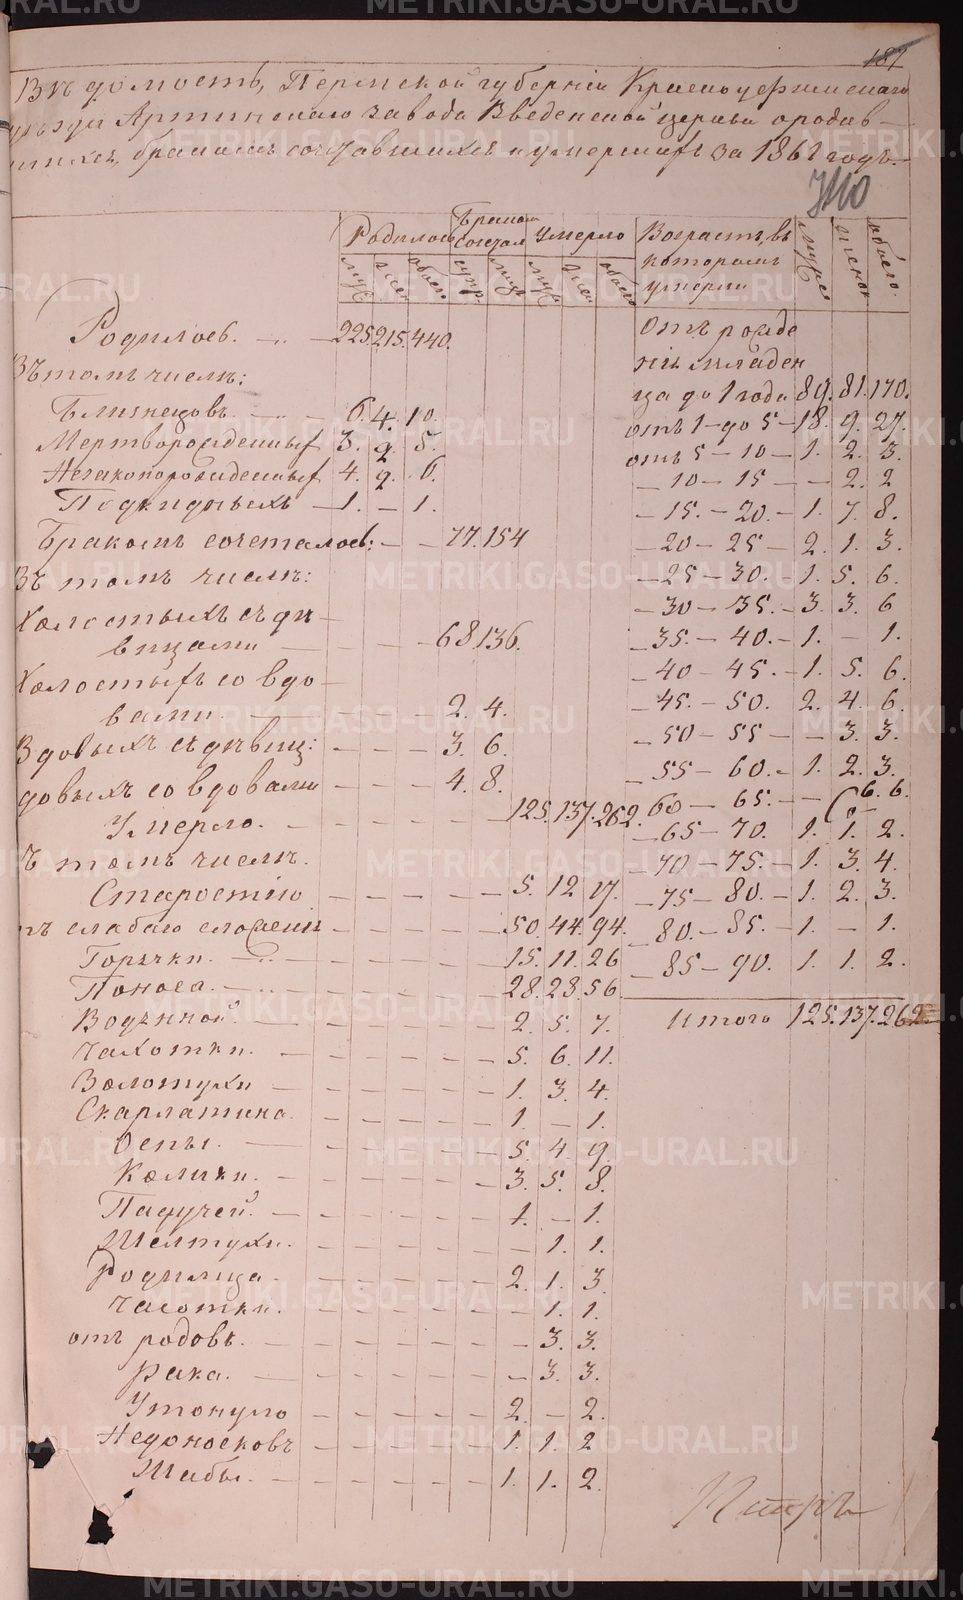 187
Вѣдомость, Пермской губерніи Красноуфимскаго
уѣзда Артинскаго завода Введенской церкви о родив-
шихся, бракомъ сочетавшихся и умершихъ за 1861 годъ.
Родилось Бракомъ сочетал Умерло Возрастъ, въ которомъ умерли муж женск обоего.
муж жен обоего супр. лицъ муж жен обоего
Родилось. — 225. 215. 440.
Въ томъ числѣ:
Близнецовъ. — 6. 4. 10.
Мертворожденныхъ 3. 2. 5.
Незаконорожденныхъ 4. 2. 6.
Подкидныхъ — 1. — 1.
Бракомъ сочеталось: — — 77. 154
Въ томъ числѣ:
Холостыхъ съ дѣ-
вицами — — — — 68 136.
Холостыхъ со вдо-
вами. — — — — 2. 4.
Вдовыхъ съ дѣвиц: — — — 3. 6.
довыхъ со вдовами — — — 4. 8.
Умерло. — — — — — — 125. 137. 262.
ъ томъ числѣ.
Старостію — — — — — 5. 12 17.
слабаго сложенія — — — — — 50. 44. 94.
Горячки. — 15. 11. 26
Поноса. — 28. 28. 56.
Водяной — — — — — — 2. 5. 7.
Чахотки. — — — — — — 5. 6. 11.
Золотухи — — — — — — 1. 3. 4.
Скарлатина. — — — — — 1. — 1.
Оспы. — — — — — 5. 4. 9.
Колики. — — — — — — 3. 5. 8.
Падучей. — — — — — — 1. — 1.
Желтухи. — — — — — — 1. 1.
Родимца. — — — — — — 2. 1. 3
Чесотки. — — — — — — 1. 1.
отъ родовъ. — — — — — — — 3. 3.
Рака. — — — — — — 3. 3.
Утонуло — — — — — 2. — 2.
Недоносковъ — — — — — 1. 1. 2
Жабы. — — — — — — 1. 1. 2.
Отъ рожде
нія младен
ца до 1 года 89. 81. 170.
отъ 1 — до 5 — 18. 9. 27.
отъ 5 — 10 — 1. 2. 3.
— 10 — 15 — — 2. 2
— 15. — 20. — 1. 7. 8.
— 20 — 25 — 2. 1. 3.
— 25 — 30. — 1. 5. 6.
— 30 — 35. — 3. 3. 6
— 35. — 40. — 1. — 1.
— 40 — 45. — 1. 5. 6.
— 45. — 50. 2. 4. 6.
— 50 — 55 — — 3. 3.
— 55 — 60. — 1. 2. 3.
60 — 65. — — 6. 6.
— 65 — 70. 1. 1. 2.
— 70 — 75. — 1. 3. 4.
— 75 — 80. — 1. 2. 3.
— 80. — 85. — 1. — 1.
— 85 — 90. 1. 1. 2.
Итого 125. 137. 262.
METRIKI.GASO-URAL.RU